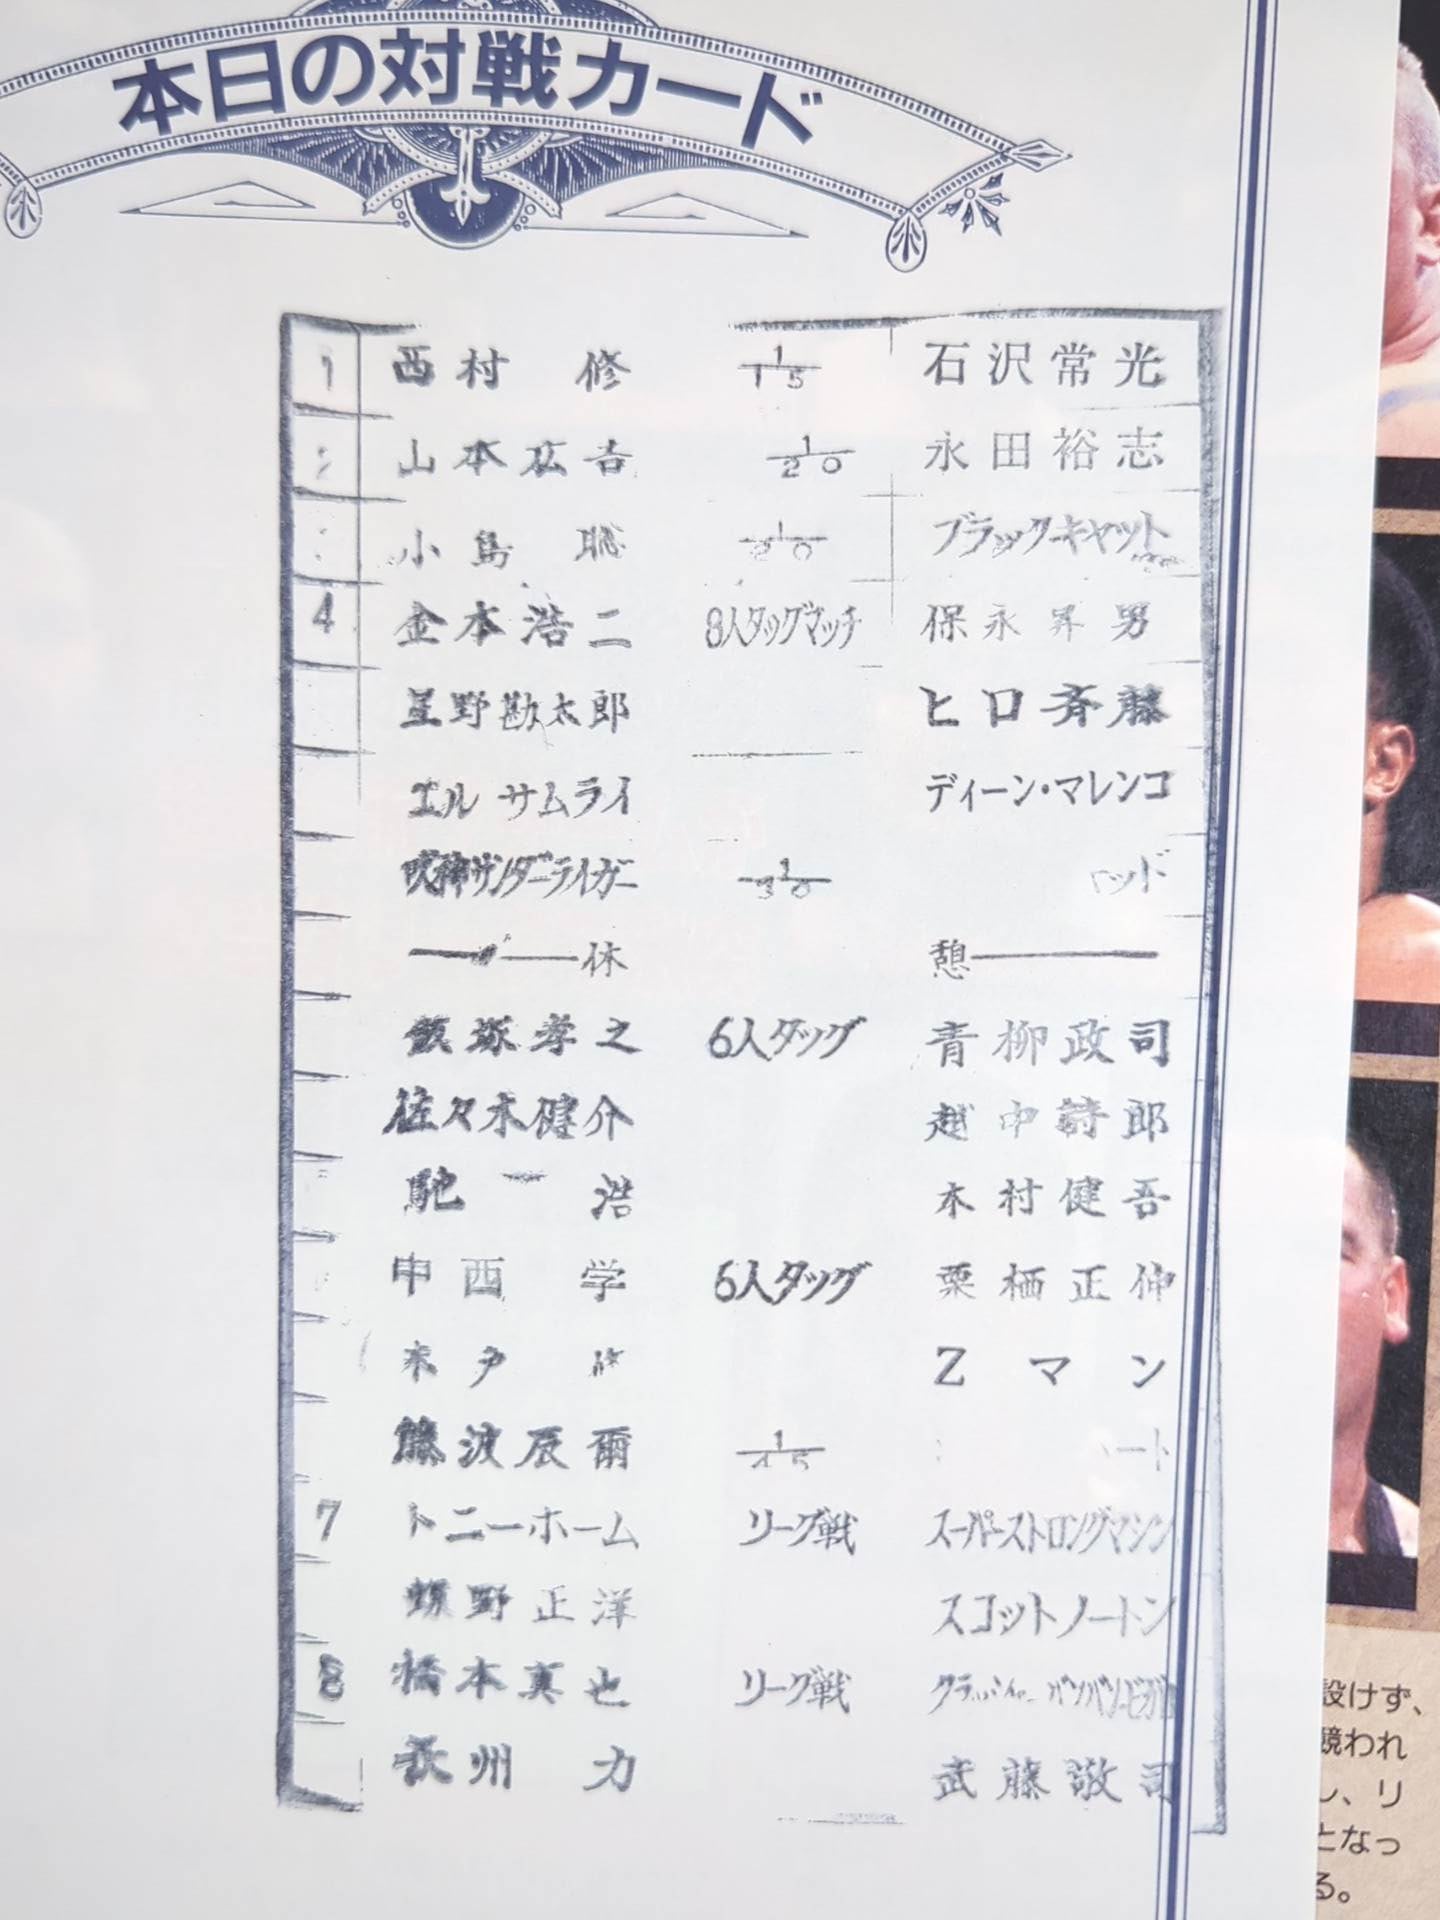 本日の対戦カード
1 西村 修 1/15 石沢常光
山本広吉 1/20 永田裕志
小島 聡 1/20 ブラックキャット
4 金本浩二 8人タッグマッチ 保永昇男
星野勘太郎 ヒロ斉藤
エル サムライ ディーン・マレンコ
獣神サンダーライガー 1/30 ッド
休 憩
飯塚孝之 6人タッグ 青柳政司
佐々木健介 越中詩郎
馳 浩 木村健吾
中西 学 6人タッグ 栗栖正伸
木戸 修 Z マン
藤波辰爾 1/45 ート
7 トニーホーム リーグ戦 スーパーストロングマシン
蝶野正洋 スコットノートン
8 橋本真也 リーグ戦 クラッシャーバンバンビガロ
長州 力 武藤敬司
設けず、
競われ
し、リ
となっ
る。